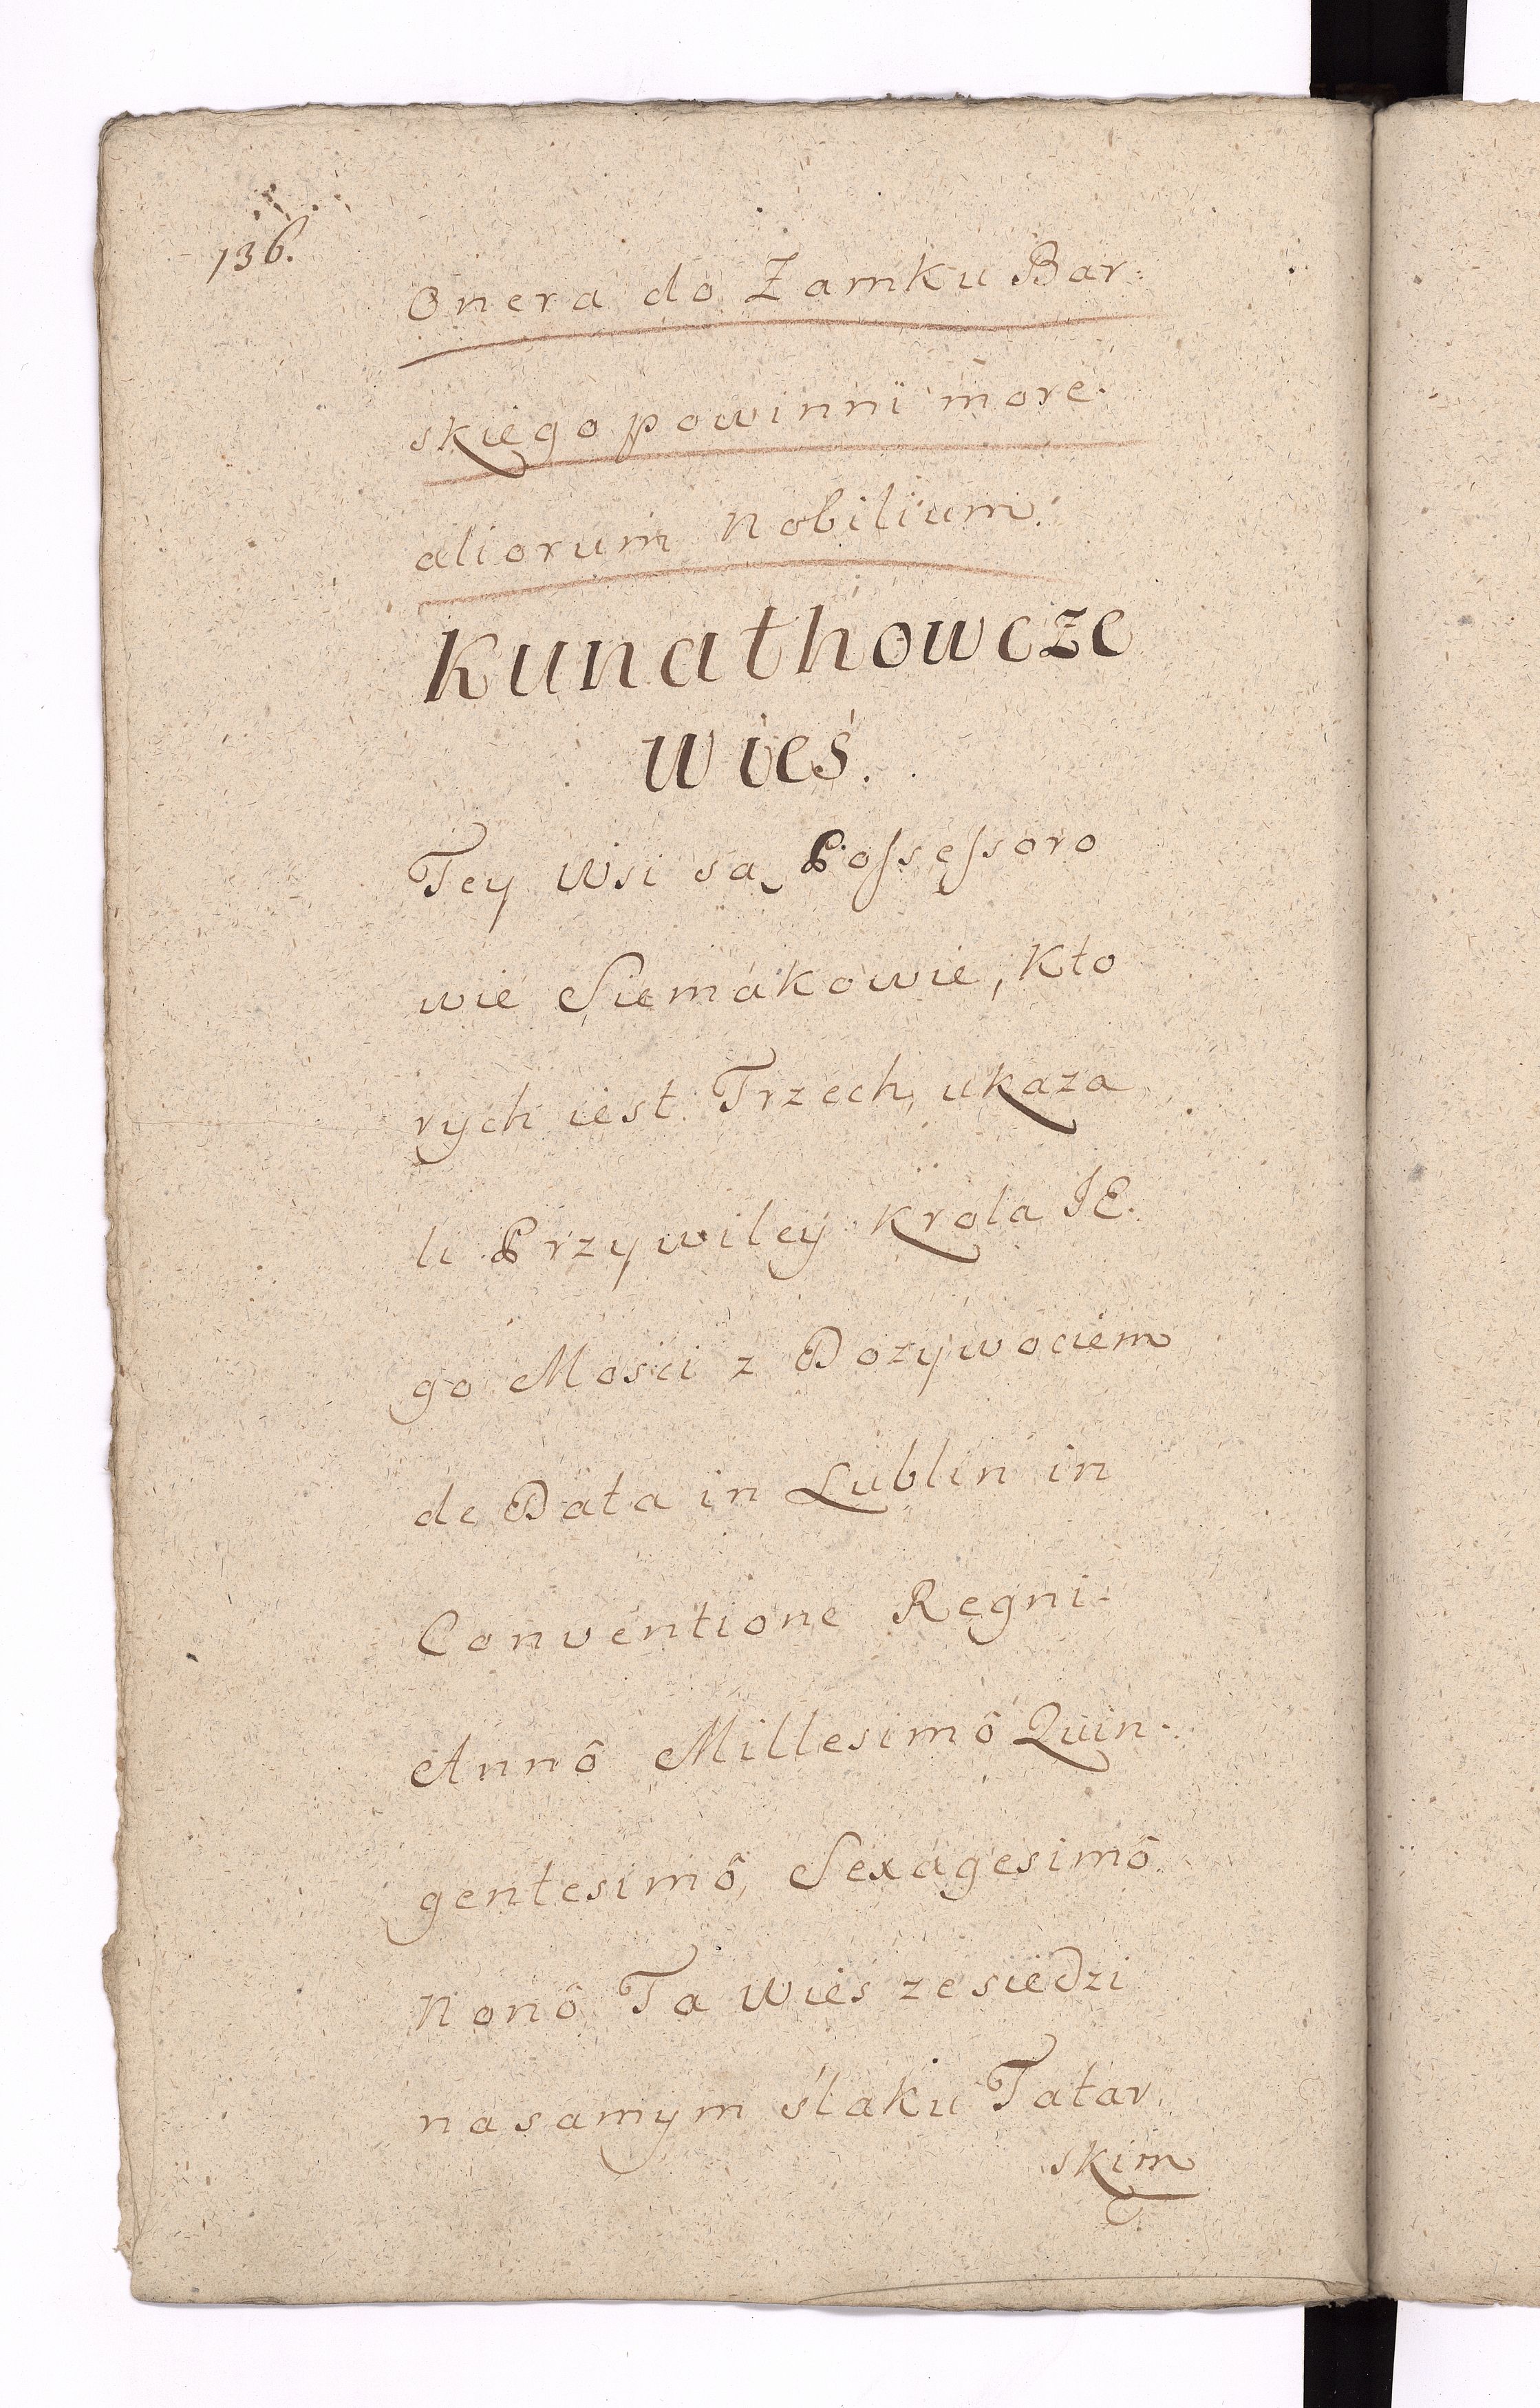 136.
Onera do Zamku Bar:
skiego powinni more.
aliorum Nobilium.
Kunathowcze
wieś.
Tey Wsi są Possessoro
wie Siemakowie, Kto
rych iest Trzech, ukaza
li Przywiley Krola IE.
go Mości z Dozywociem
de Data in Lublin in
Conventione Regni.
Annô Millesimô Quin.
gentesimô, Sexagesimô
Nonô Ta Wieś ze siedzi
na samym ślaku Tatar.
skim